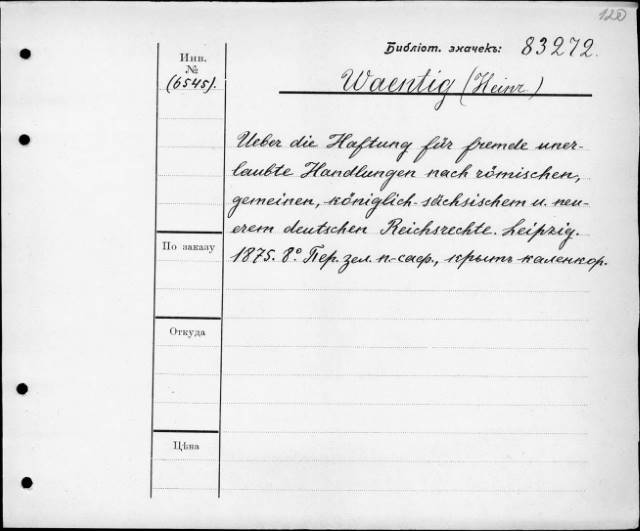 120
Библіот. значекъ: 83272.
Инв.
№
(6545).
Waentig (Heinr.)
Ueber die Haftung für fremde uner-
laubte Handlungen nach römischen,
gemeinen, königlich-sächsischem u. neu-
erem deutschen Reichsrechte. Leipzig.
1875. 8º. Пер. зел. п.-саф., крытъ каленкор.
По заказу
Откуда
Цѣна